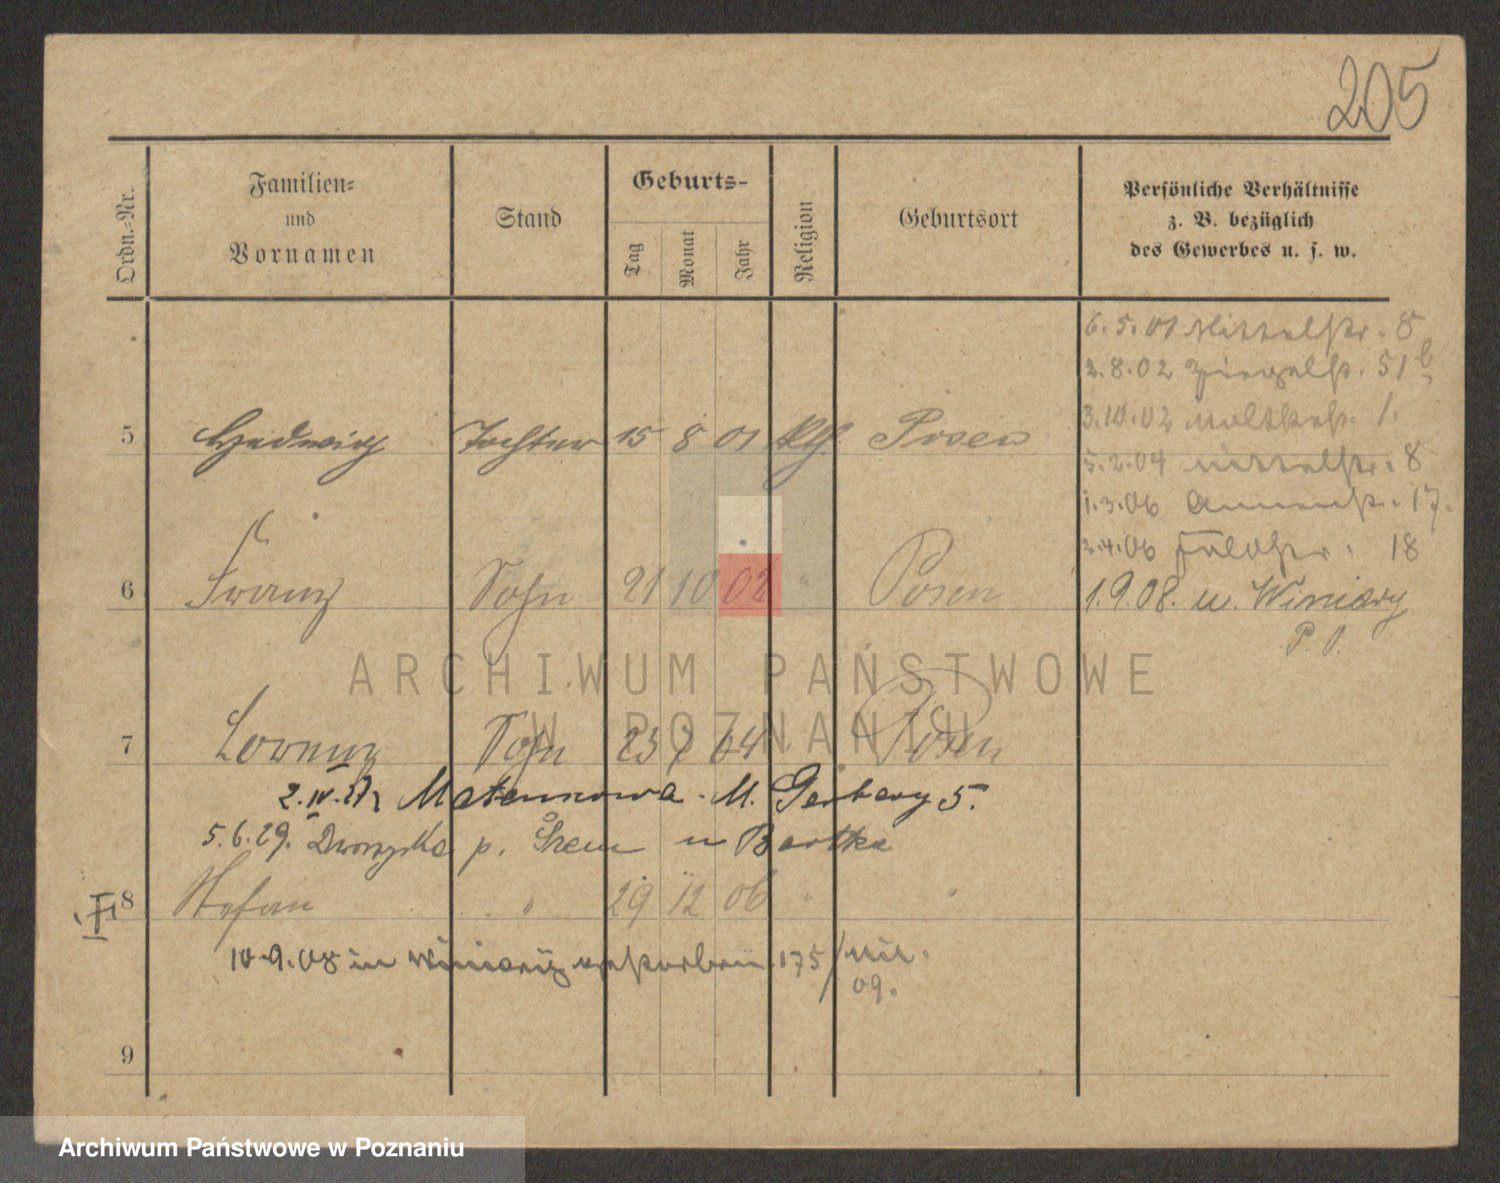 205
Ordn.-Nr.
Familien-
und
Vornamen
Stand
Geburts-
Tag
Monat
Jahr
Religion
Geburtsort
Persönliche Verhältnisse
z. B. bezüglich
des Gewerbes u. s. w.
6.5.01 Mittelstr. 8
2.8.02 Ziegelstr. 51b
3.10.02 Moltkestr. 1.
5 Hedwig Tochter 15 8 01 kth. Posen
5.2.04 Mittelstr. 8
1.3.06 Annenstr. 17.
2.4.06 Feldstr. 18
6 Franz Sohn 21 10 02 " Posen
1.9.08. n. Winiary
P. O.
ARCHIWUM PAŃSTWOWE
W POZNANIU
7 Lorenz Sohn 23 7 04 Posen
2.IV.27 M. Garbary 5.
5.6.29. p. Śrem u Bartka
8 Stefan " 29 12 06 " "
10.9.08 in Winiary verstorben 175/
09.
9
Archiwum Państwowe w Poznaniu